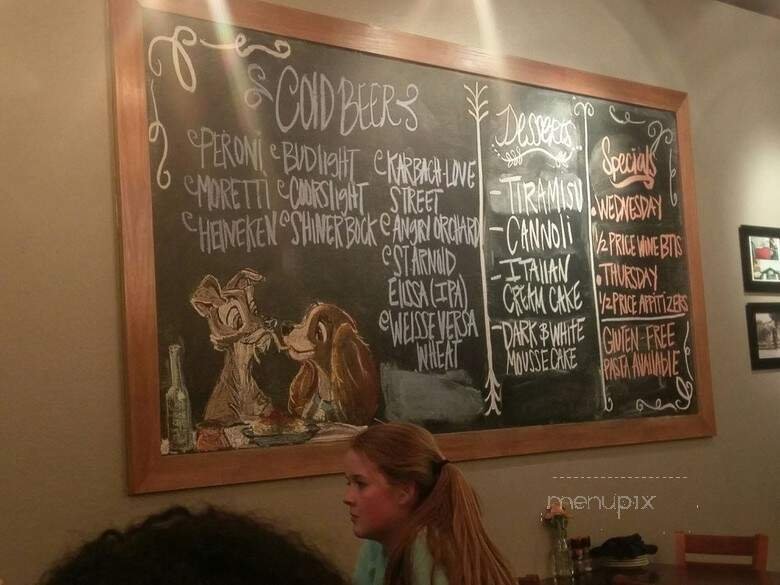 COLD BEER
PERONI
MORETTI
HEINEKEN
BUD LIGHT
COORS LIGHT
SHINER BOCK
KARBACH-LOVE
STREET
ANGRY ORCHARD
ST ARNOLD
ELISSA (IPA)
WEISSE VERSA
WHEAT
Desserts
- TIRAMISU
- CANNOLI
- ITALIAN
CREAM CAKE
- DARK & WHITE
MOUSSE CAKE
Specials
• WEDNESDAY
1/2 PRICE WINE BTLS
• THURSDAY
1/2 PRICE APPITIZERS
GLUTEN-FREE
PASTA AVAILABLE
menupix